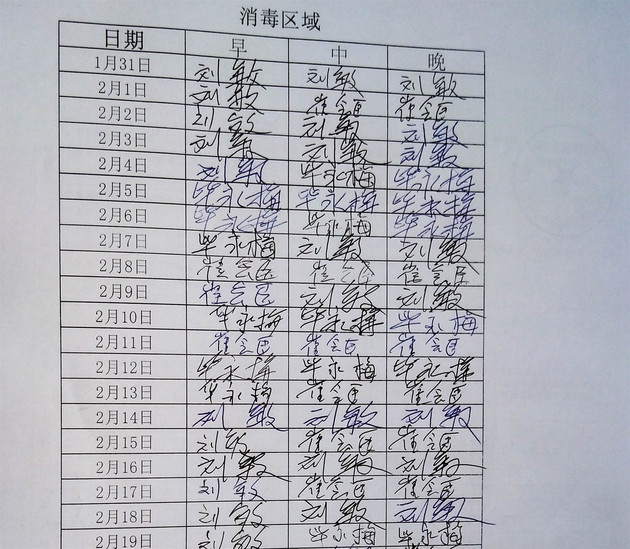 消毒区域
日期 早 中 晚
1月31日 刘敏 刘敏 刘敏
2月1日 刘敏 崔会 崔会
2月2日 刘敏 刘敏 刘敏
2月3日 刘敏 刘敏 刘敏
2月4日 刘敏 毕永梅 毕永梅
2月5日 毕永梅 毕永梅 毕永梅
2月6日 毕永梅 毕永梅 毕永梅
2月7日 毕永梅 刘敏 刘敏
2月8日 崔会 崔会 崔会
2月9日 崔会 刘敏 刘敏
2月10日 毕永梅 毕永梅 毕永梅
2月11日 崔会 崔会 崔会
2月12日 毕永梅 毕永梅 毕永梅
2月13日 毕永梅 崔会 崔会
2月14日 刘敏 刘敏 刘敏
2月15日 刘敏 崔会 崔会
2月16日 刘敏 刘敏 刘敏
2月17日 刘敏 崔会 崔会
2月18日 刘敏 刘敏 刘敏
2月19日 刘敏 毕永梅 毕永梅